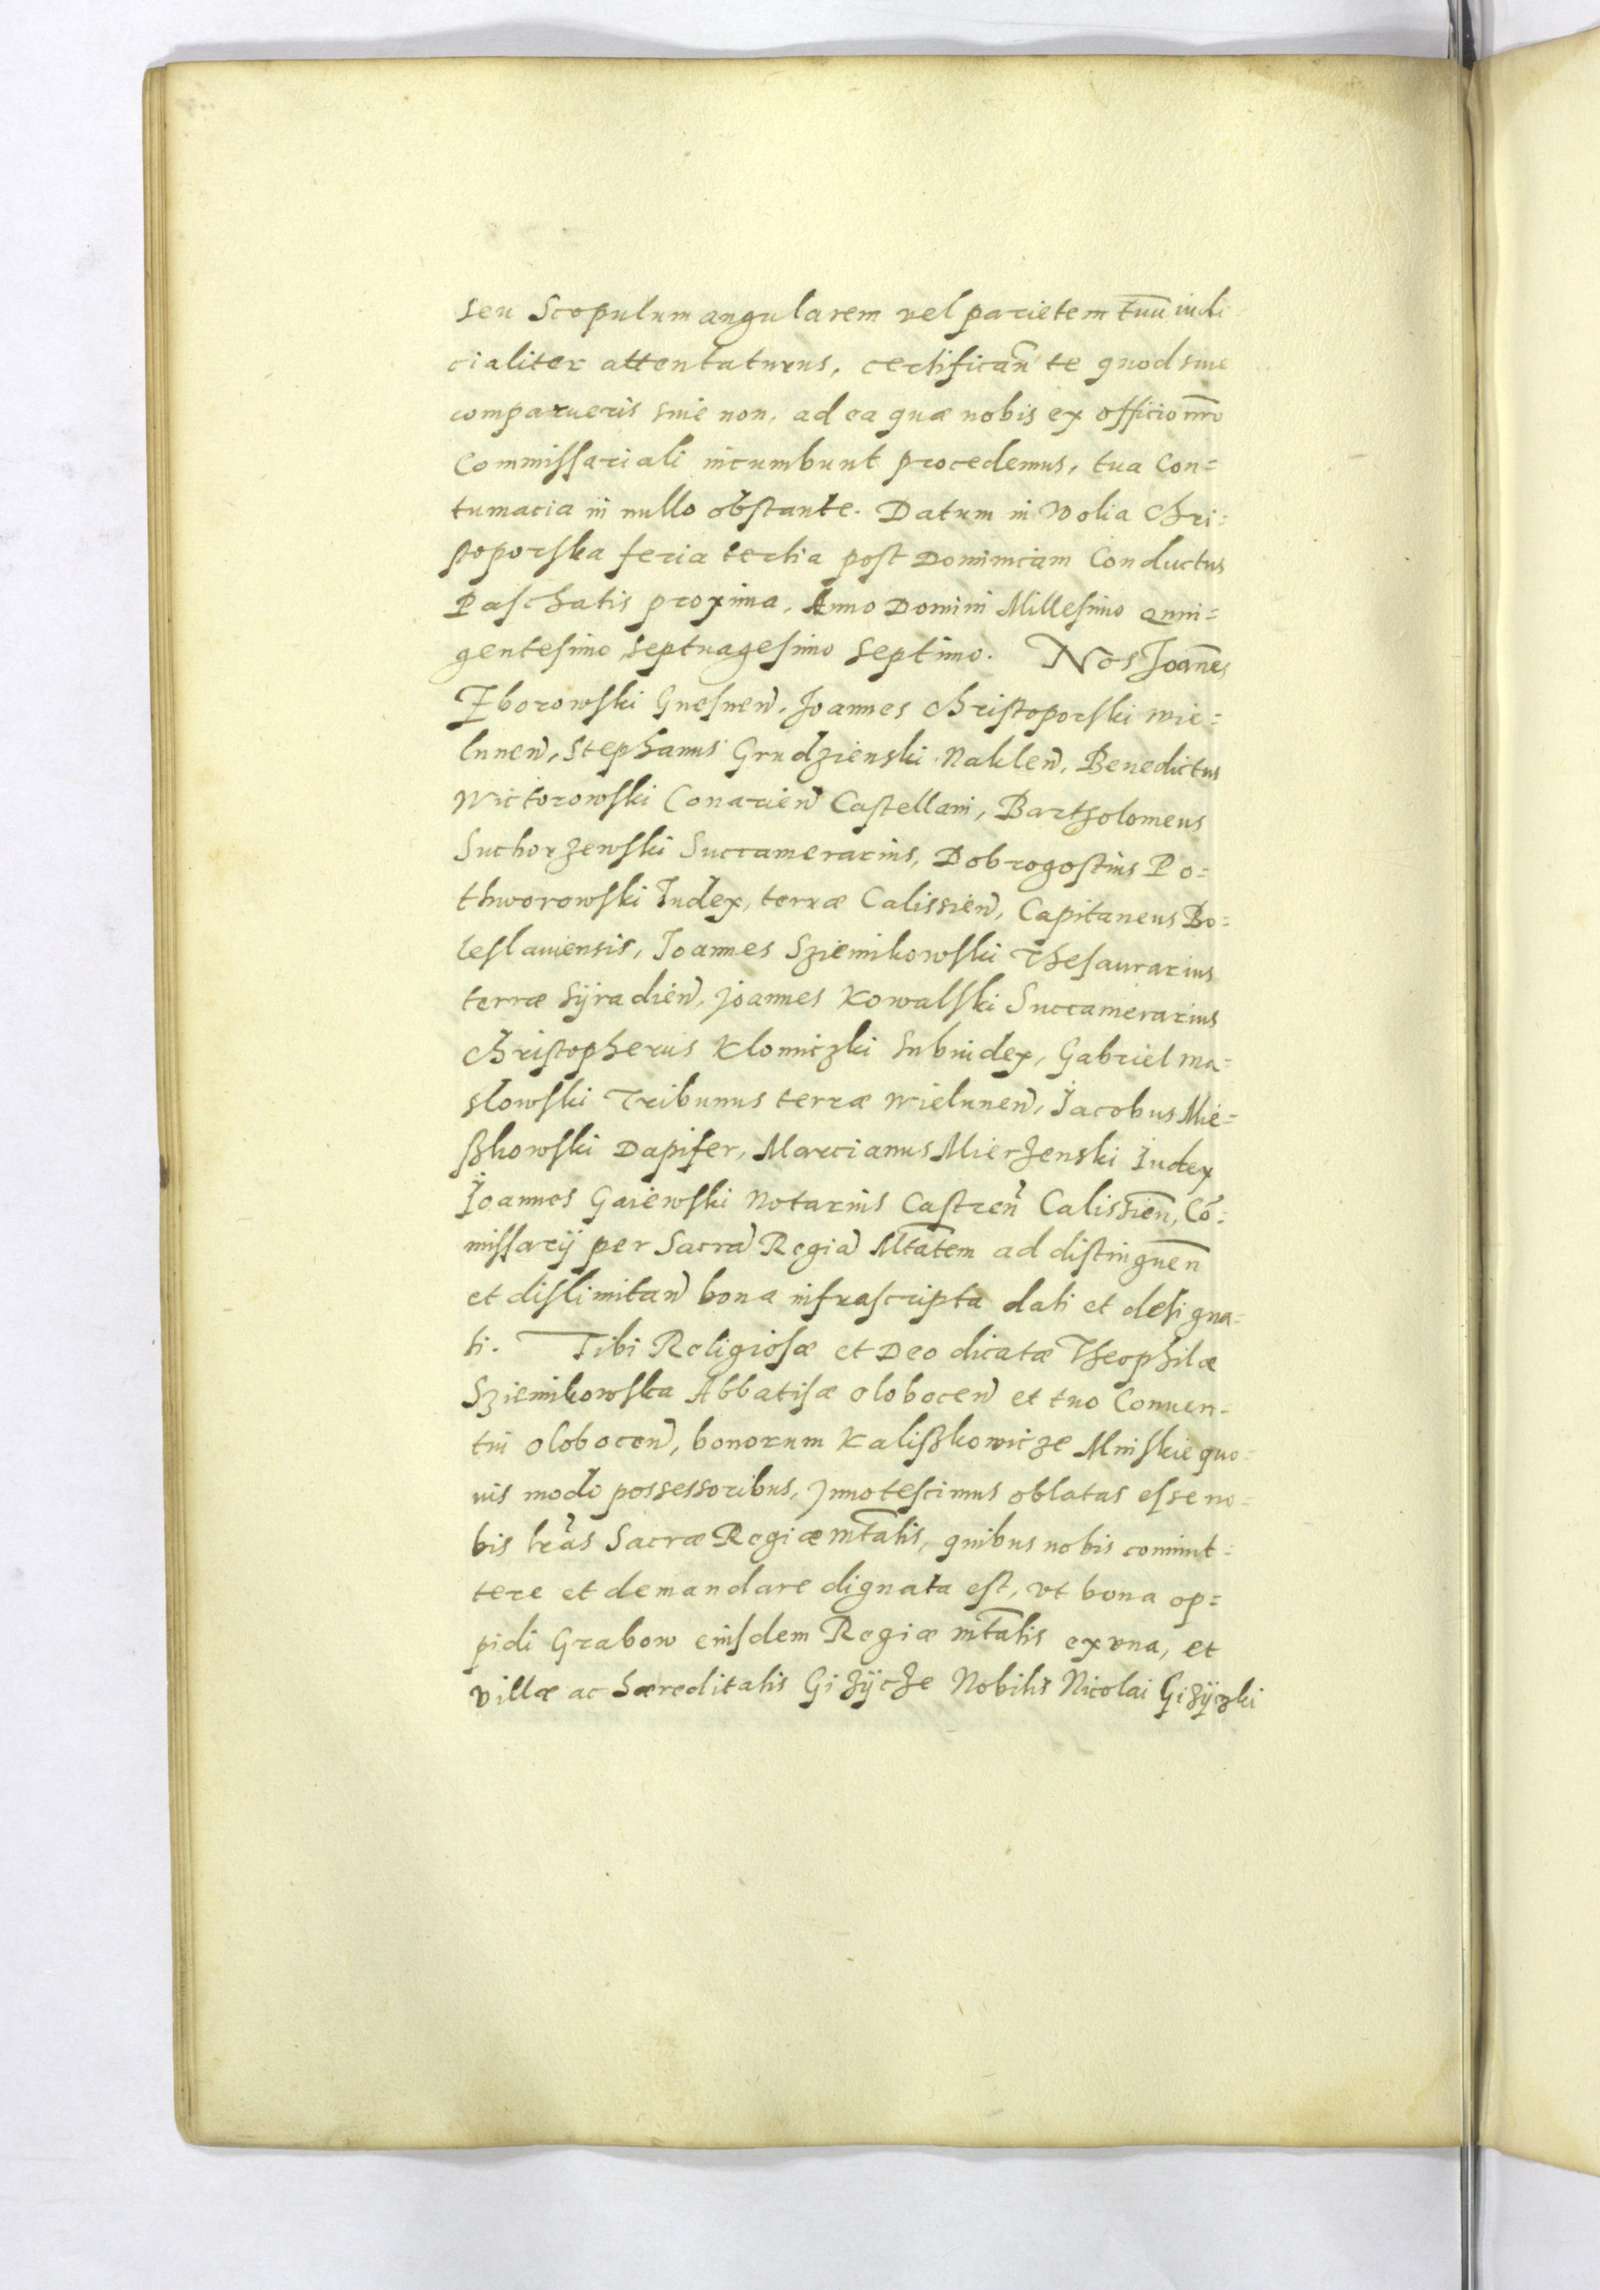 seu Scopulum angularem vel parietem tuū iudi
cialiter attentaturus, certifican̄ te quod siue
comparueris siue non, ad ea quæ nobis ex officio nr̄o
Commissariali incumbunt procedemus, tua Con=
tumacia in nullo obstante. Datum in Wolia Chri=
stoporska feria tertia post Dominicam Conductus
Paschatis proxima, Anno Domini Millesimo Quin=
gentesimo septuagesimo septimo. Nos Joan̄es
Zborowski Gnesnen̄, Joannes Christoporski Wie=
lunen̄, Stephanus Grudzienski Naklen̄, Benedictus
Wictorowski Conarien̄ Castellani, Bartholomeus
Suchorzewski Succamerarius, Dobrogostius Po=
thworowski Iudex, terræ Calissien̄, Capitaneus Bo=
leslauiensis, Joannes Sziemikowski Thesaurarius
terræ Syradien̄, Joannes Kowalski Succamerarius
Christopherus Klomiczki Subiudex, Gabriel Ma=
slowski Tribunus terræ Wielunen̄, Jacobus Mie=
ßkowski Dapifer, Marcianus Mierzenski Iudex
Joannes Gaiewski Notarius Castren̄ Calissien̄, Cō=
missarij per Sacrā Regiā Mtatem ad distinguen̄
et dislimitan̄ bona infrascripta dati et designa=
ti. Tibi Religiosæ et Deo dicatæ Theophilæ
Sziemikowska Abbatisæ Olobocen̄ et tuo Conuen=
tui Olobocen̄, bonorum Kalißkowicze Mniskie quo=
uis modo possessoribus, Innotescimus oblatas esse no=
bis lr̄as Sacræ Regiæ Mtatis, quibus nobis commit=
tere et demandare dignata est, vt bona op=
pidi Grabow eiusdem Regiæ Mtatis ex vna, et
villæ ac hæreditatis Giżycze Nobilis Nicolai Giżyczki